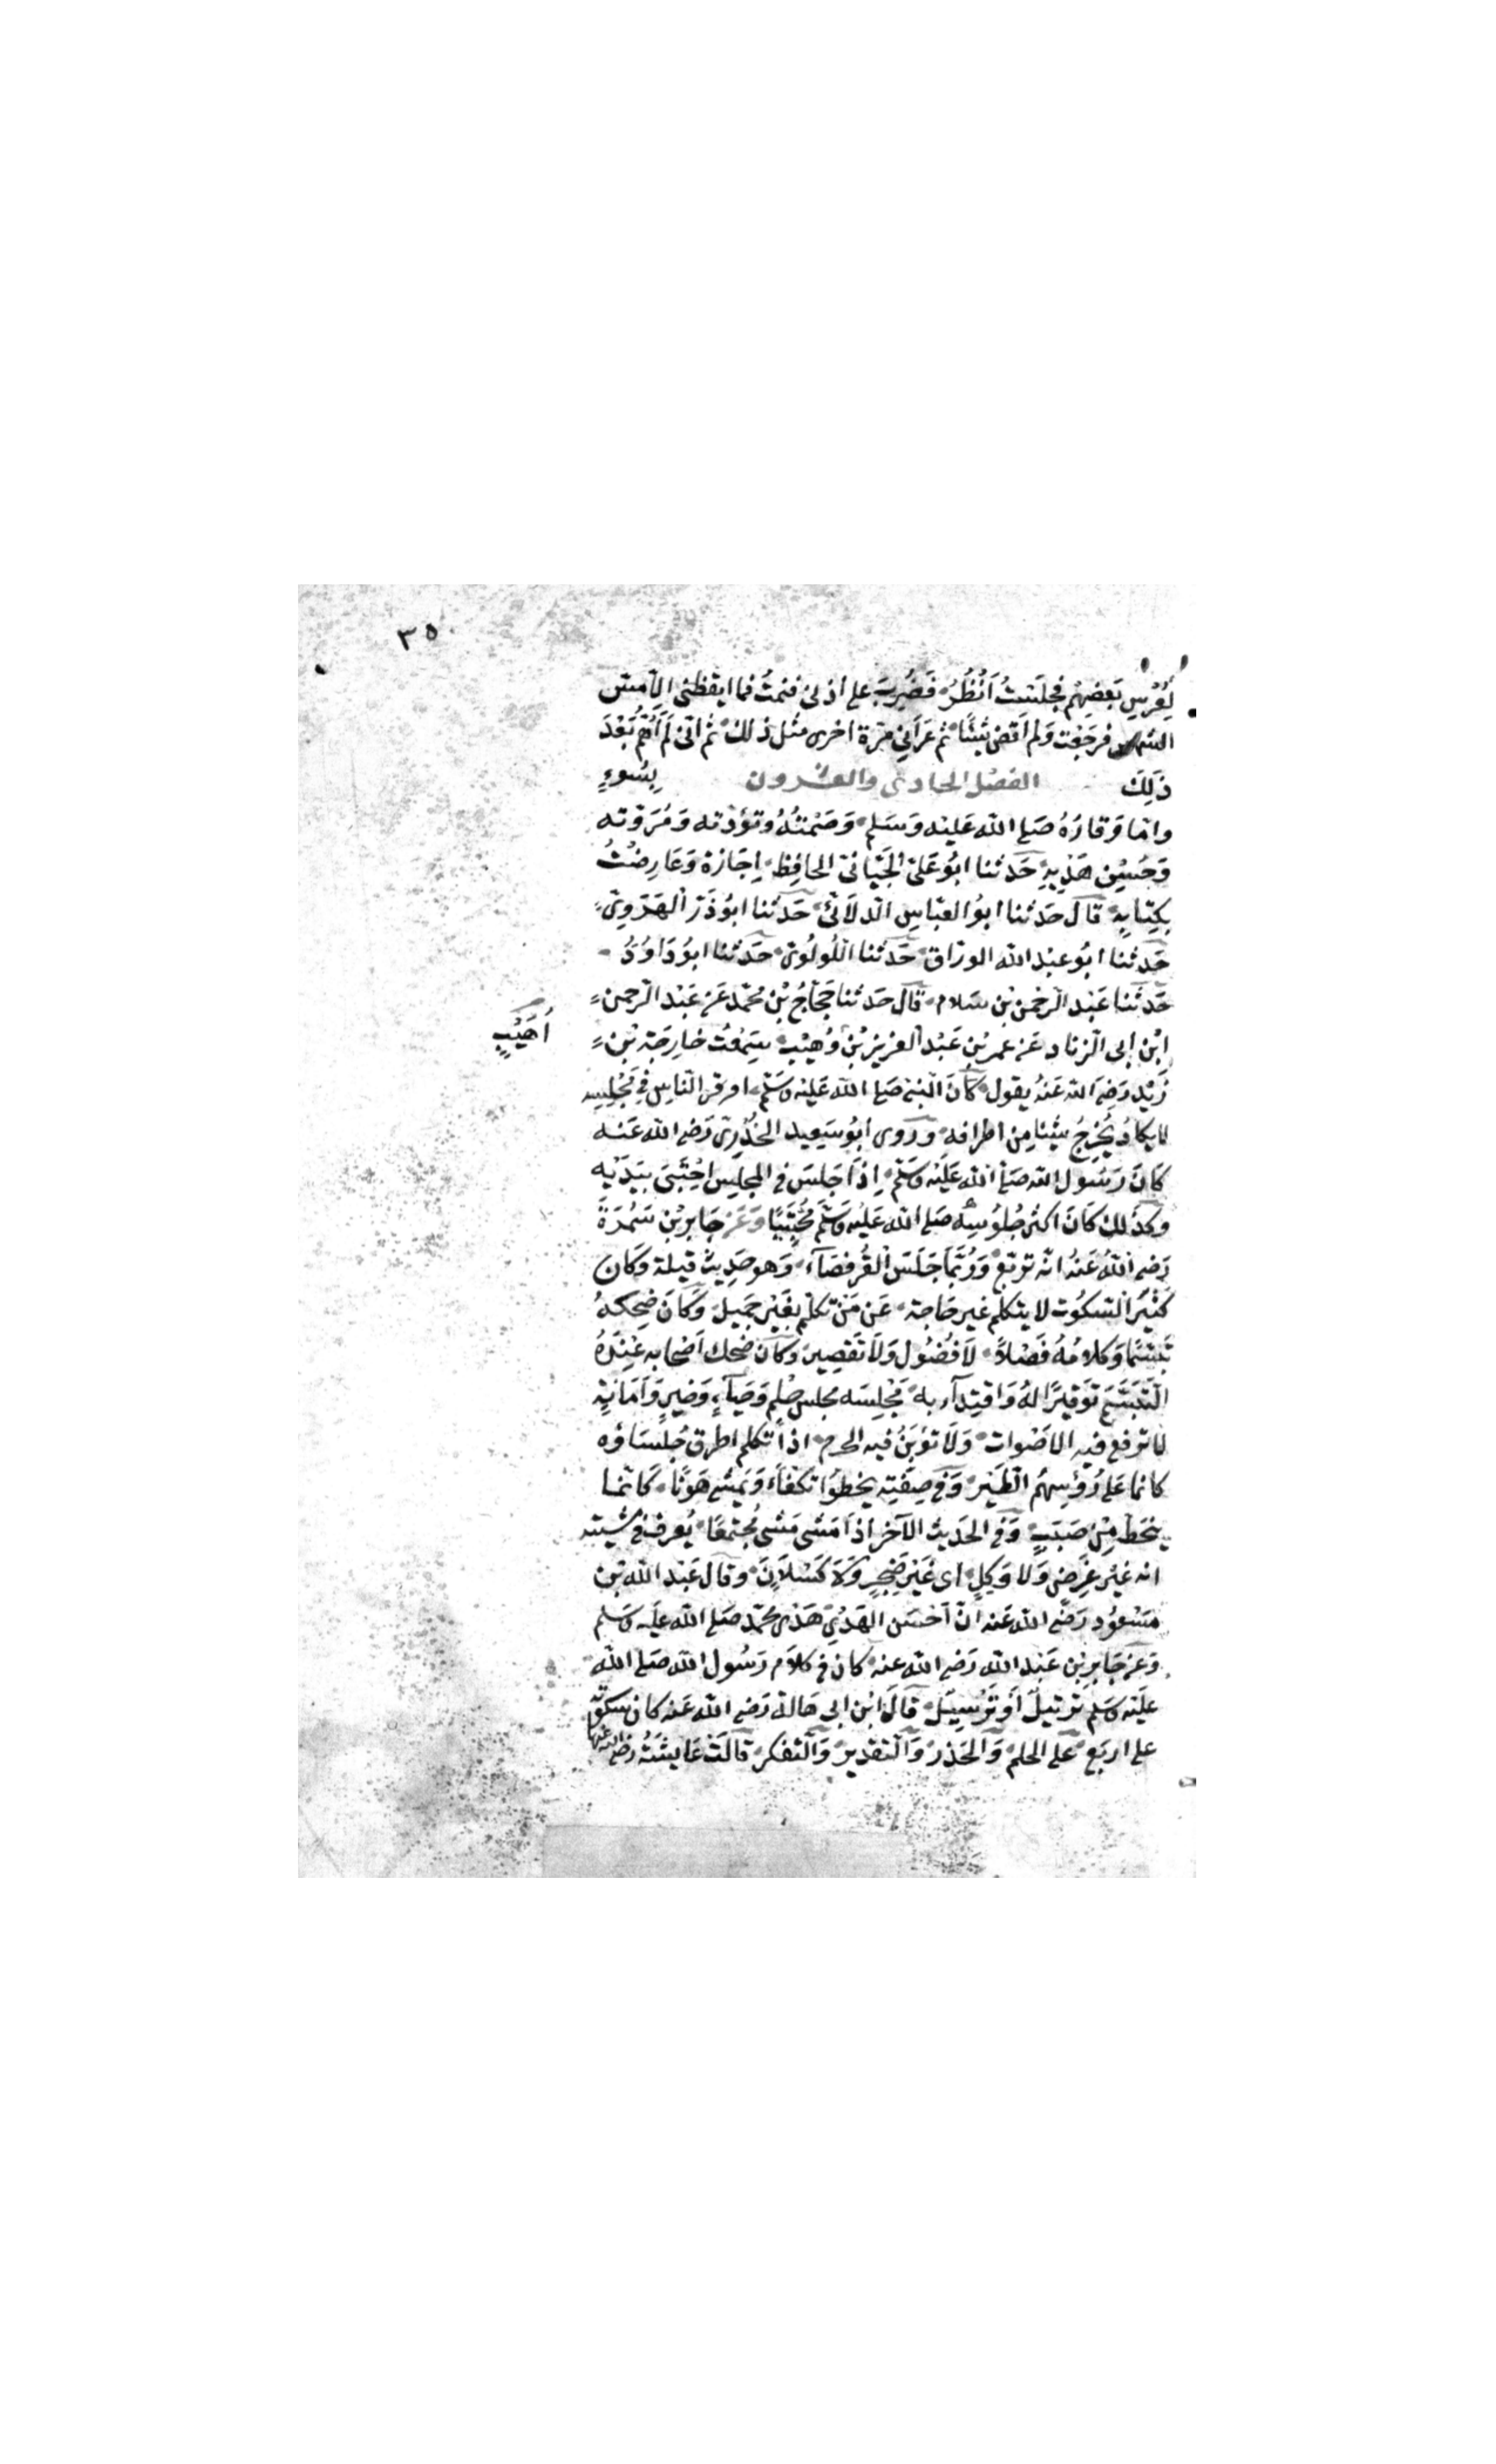 ٣٥
لِعُرْسِ بَعضِهِم فجلَسْتُ اَنْظُرُ فَضُرِبَ على اُذنى فنمتُ فما ايقظنى الاّ مسّ
الشمس فرجَعْت وَلم اَقضِ شَيْئًا ثم عَرَانِي مَرّة اخرى مثل ذلك ثم انى لَم اَهُمّ بَعْدَ
ذَلِكَ الفصْل الحادى والعشرون بِسُوءٍ
وامّا وَقَارُهُ صَلى الله عَليْه وَسَلم وَصَمْتُهُ وتؤدته وَمُرَوّته
وَحُسْن هَدْيِهِ حَدثنا ابُو عَلىّ الجَيّانىّ الحافِظ اِجَازة وَعَارضْتُ
بكِتَابِهِ قَال حَدثنا ابُو العبّاس الدلَائىّ حَدثنا ابُو ذَرّ الهَرَوِىّ
حَدثنا ابُو عبْد الله الورّاق حَدثنا اللُولُوىّ حَدثنا ابُو دَاوُدُ
حَدثنا عَبْد الرحْمن بْن سَلام قَال حَدثنا حَجّاجُ بْن مُحمّد عَن عَبْد الرحمن
ابْن ابى الزناد عَن عمر بْن عَبْد العزيز بْن وُهيْبٍ سَمِعْت خارِجَة بْن
اُهَيْبٍ
زَيْد رَضِىَ الله عَنهُ يقول كَانَ النبىّ صَلى الله عَليْه وَسَلّم اوقر النّاس فِى مَجْلِسِه
لا يكادُ يُخْرِجُ شيْئا مِن اطرافه وروى ابُو سَعِيد الخُدْرِىّ رَضى الله عَنه
كَانَ رَسُول الله صَلى الله عَليْه وَسَلّم اِذَا جَلَسَ فى المجلِس احْتَبَى بيَدَيْه
وكذلك كَانَ اكثر جُلُوسِه صَلى الله عَليْه وَسَلّم مُحْتَبِيًا وَعَن جَابر بْن سَمُرَةَ
رَضى اللهُ عَنهُ انّه تربّع وَرُبّمَا جَلَسَ القُرفصَاءَ وَهو حَدِيث قيلة وَكَان
كَثيْرَ السّكوُت لا يتكلم غير حَاجة عَن مَنْ تكلّم بِغَيْر جَميل وَكَانَ ضحِكهُ
تَبسّمًا وَكلامُهُ فَصْلاً لَا فُضُول وَلَا تقصِير وكان ضحك اَصْحابه عِنْدَهُ
التّبَسّمَ تَوقيرًا لهُ وَاقتِدآء به مَجْلِسه مجلس حلم وَحَيآءٍ وَخيرٍ وَاَمَانةٍ
لا ترفع فيهِ الاصْوات وَلَا تؤبَنُ فيه الحرم اذا تكلم اطرق جُلسَاؤه
كانما عَلى رُؤسِهمُ الطّيْر وَفى صِفَتِه يخطُوا تكفّأً وَيَمْشى هَوْنًا كَانّمَا
ينحَطّ مِنْ صَبَبٍ وَفى الحَديث الآخر اذَا مَشى مَشى مُجْتمعًا يُعرف فى مشْيته
انه غيْر غَرضٍ وَلا وَكِلٍ اى غَيْر ضَجِرٍ وَلَا كَسْلَانَ وقال عَبْد الله بْن
مَسْعوُد رَضى الله عَنه انّ احْسَن الهَدْىِ هَدْى محمّد صَلى الله عَليْه وَسَلم
وَعَن جَابرِ بْن عَبْد الله رَضى الله عنه كان فى كلاَم رَسُول الله صَلى الله
عَليْه وَسَلم ترتيلٌ اَو تَرْسِيل قَالَ ابْن ابى هَالة رَضى الله عَنه كان سكوُتهُ
على اربع عَلى الحلم وَالحَذر وَالتقدير وَالتفكر قَالَتْ عَايشَةُ رَضى الله عَنها